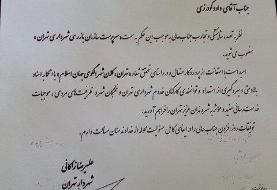 جناب آقای داود گودرزی
نظر به تعهد، شایستگی و تجارب جنابعالی به موجب این حکم به سمت «سرپرست سازمان بازرسی شهرداری تهران»
منصوب می‌شوید.
امید است با استعانت از پروردگار متعال و در راستای تحقق شعار «تهران، کلان شهر الگوی جهان اسلام» با نگاه به اسناد
بالادستی و بهره‌گیری از استعداد و توانمندی کارکنان خدوم شهرداری تهران و نخبگان شهر و ظرفیت‌های مردمی، موجبات
خدمت رسانی مفید و موثر به شهروندان عزیز تهران را فراهم آورید.
توفیقات روزافزون جنابعالی را در ایفای کامل مسئولیت محوله از خداوند منان مسئلت دارم.
علیرضا زاکانی
شهردار تهران